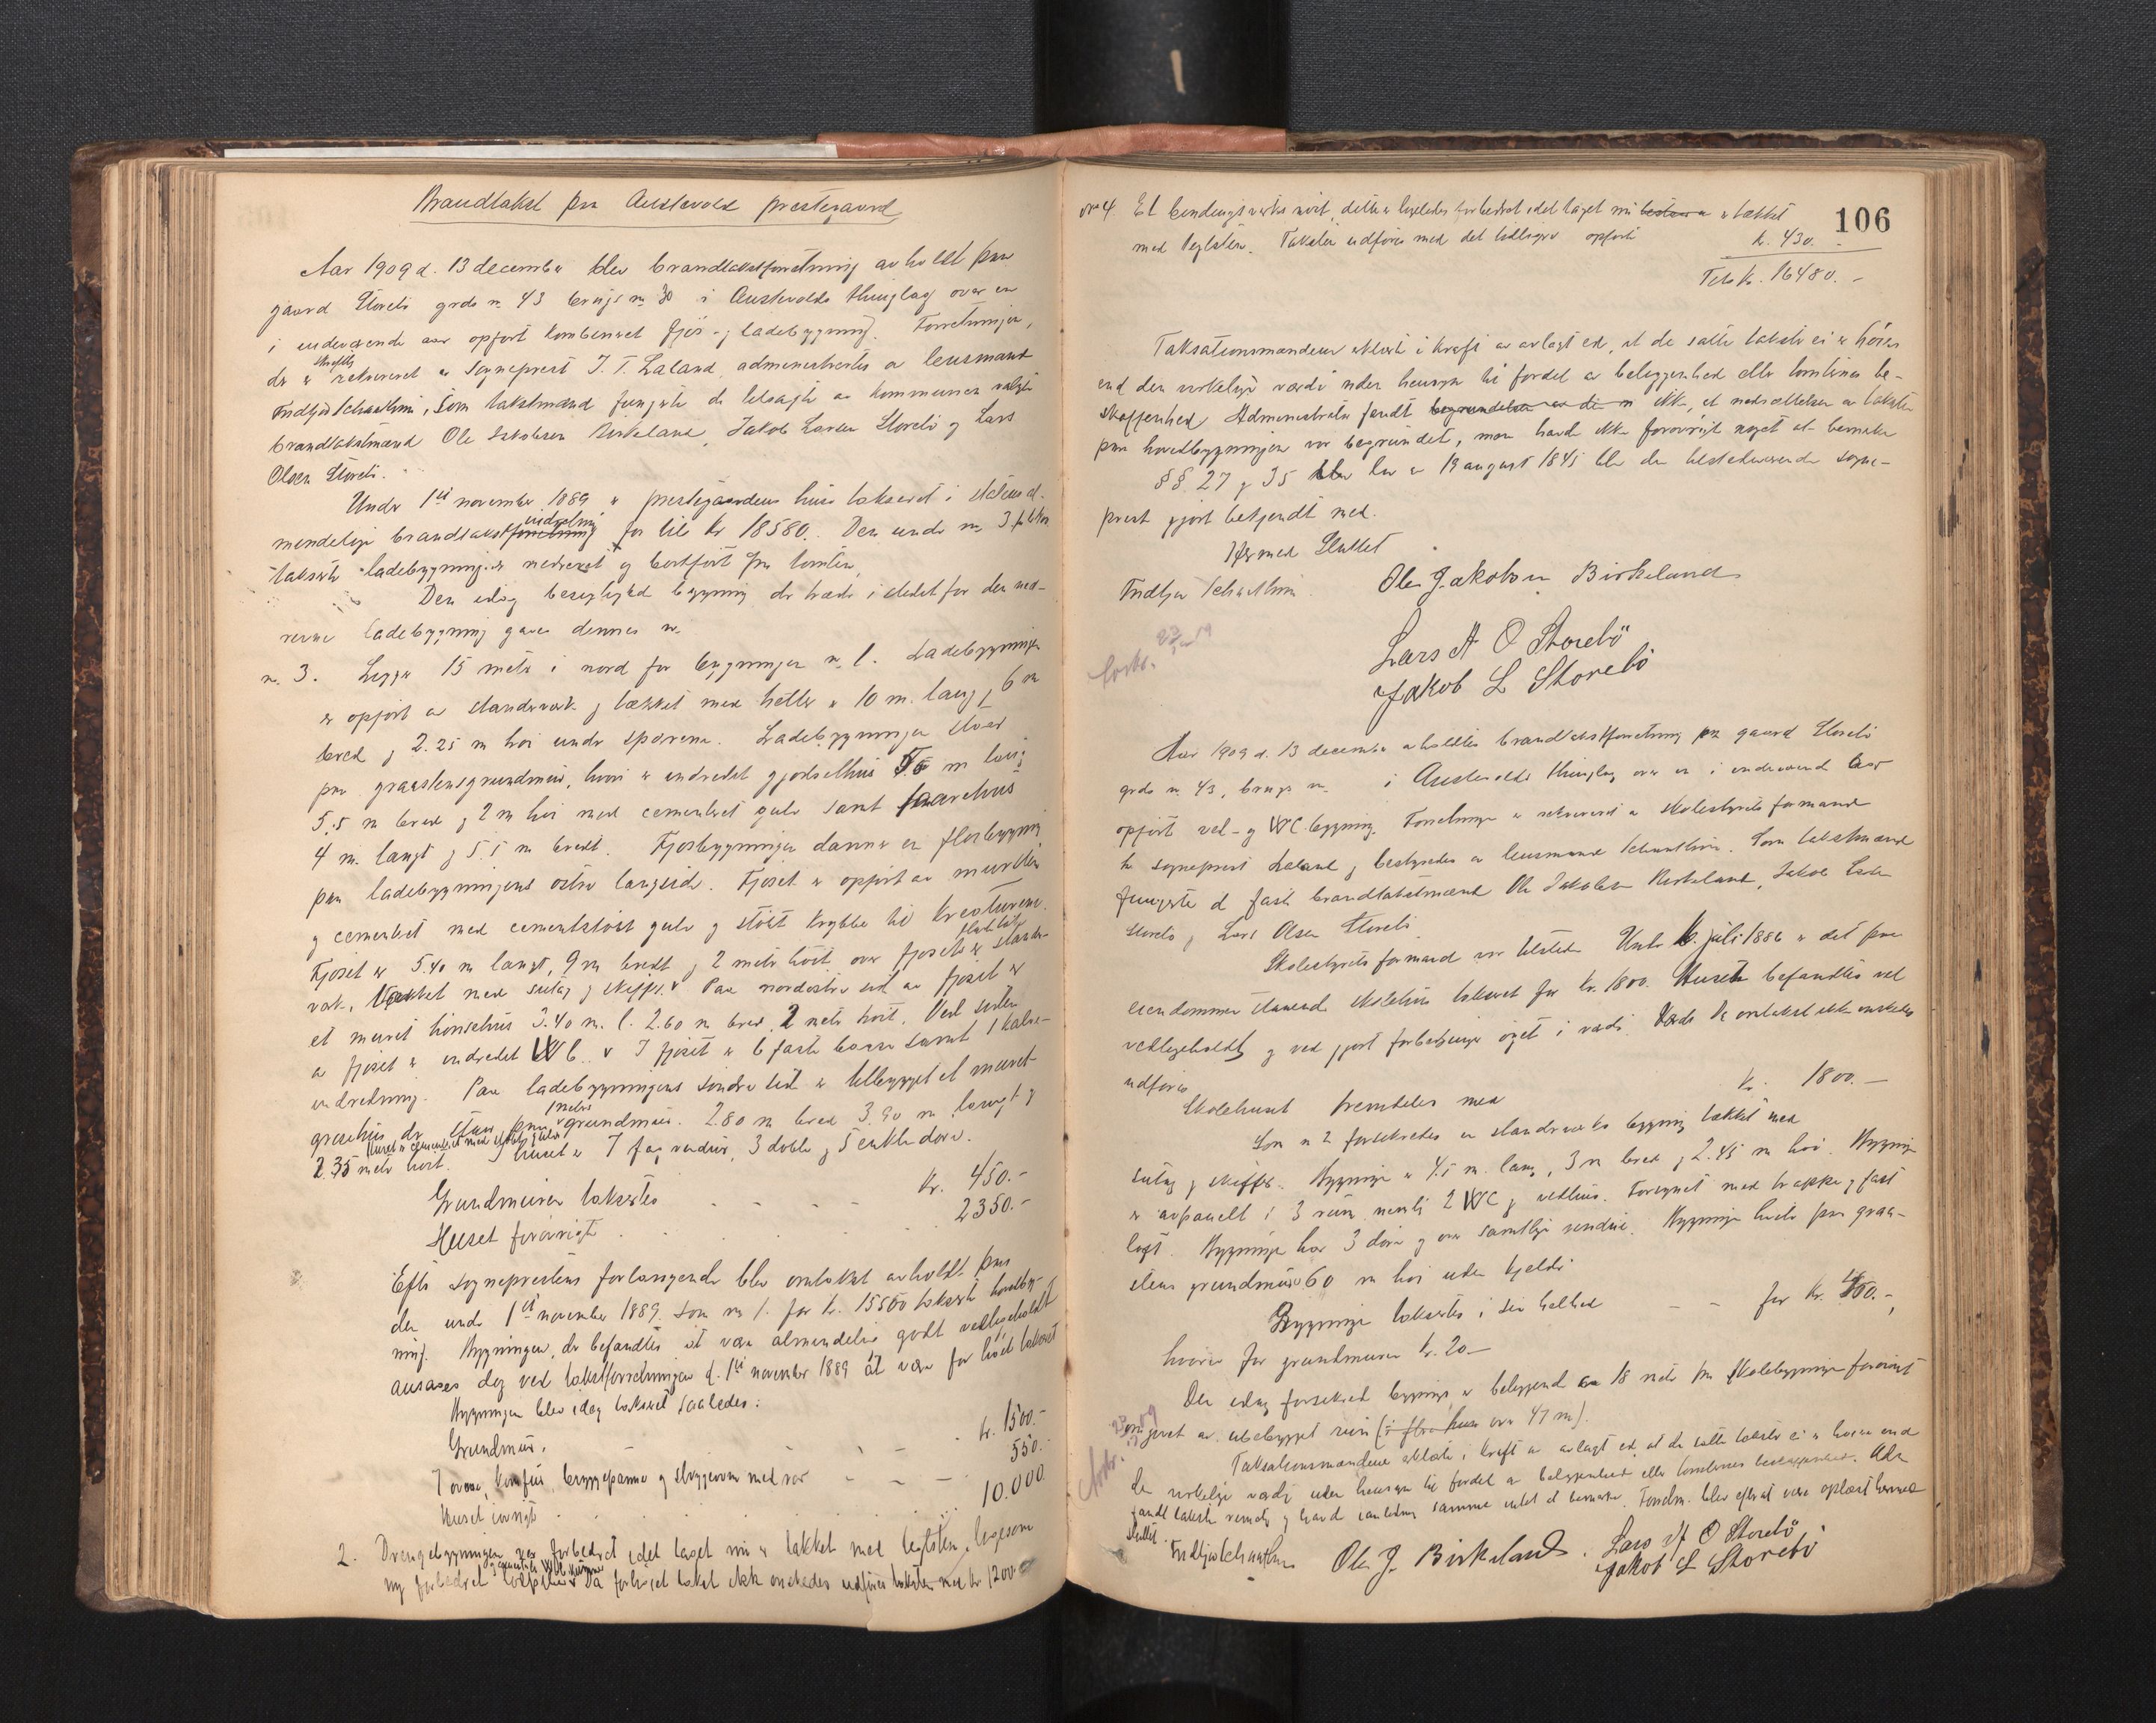 Brandtakst paa Austevold prestegaard
Aar 1909 d. 13 december blev brandtakstforretning avholdt paa
gaard Storebö grds n. 43 brugs n. 30 i Austevolds thinglag over en
i indeværende aar opfört kombineret fjös- og ladebygning. Forretningen,
der er skriftlig rekvireret av sogneprest J. T. Laland, administrertes av lensmand
Fridtjov Scharthum, som takstmænd fungerte de likesaa av kommunen valgte
brandtakstmænd Ole Jakobsen Birkeland, Jakob Larsen Storebö og Lars
Olsen Storebö.
Under 1ste november 1889 er prestegaardens huse takseret i
mindelige brandtakstforretning for tils kr 18580. Den under no 3
takserte ladebygning er nedrevet og bortfört fra tomten.
Den idag besigtigede bygning der træder i stedet for den ned-
revne ladebygning gaves dennes nr.
n. 3. Ligger 15 meter i nord for bygningen n. 1. Ladebygningen
er opfört av standverk og tækket med heller er 10 m. lang, 6 m
bred og 2.25 m höi under sperrene. Ladebygningen staar
paa graastensgrundmur, hvori er indredet gjödselhus m lang
5.5 m bred og 2 m höi med cementeret gulv samt faarehus
4 m. langt og 5.5 m bredt. Fjösbygningen danner en flöibygning
paa ladebygningens östre langside. Fjöset er opfört av mursten
og cementert med cementstöpt gulv og stöpt krybbe til kreaturene.
Fjöset er 5.40 m langt, 9 m bredt og 2 meter höit over fjöset er stand-
verk, tækket med sutag og skiffer. Paa nordöstre side av fjöset er
et muret hönsehus 3.40 m. l. 2.60 m bred 2 meter höit. Ved siden
av fjöset er indredet W C. I fjöset er 6 faste baase samt 1 kalve-
indredning. Paa ladebygningens söndre side er tilbygget et muret
grisehus der staar paa 1 meter grundmur. 2.80 m bred 3.90 m langt og
2.35 meter höit. I huset er 7 fag vinduer, 3 doble og 5 enkle döre.
Grundmuren takseres - - - - kr. 450.-
Huset forövrigt . . . 2350.-
Efter sogneprestens forlangende blev omtakst avholdt paa
den under 1ste november 1889 som no 1. for kr. 15500 takserte hovedbyg-
ning. Bygningen, der befandtes at være almindelig godt vedligeholdt
ansaaes dog ved takstforretningen d. 1ste november 1889 at være for höit takseret
Bygningen blev idag takseret saaledes:
Grundmur. - - - kr. 1500.-
7 ovne, komfur, bryggepanne og skyggeovn med rör - - - 550.-
Huset iövrigt . . . 10.000
2. Drengebygningen var forbedret idet taget nu er tækket med teglsten, ligesom
ny forbedret Da forhöiet takst ikke önskedes utföres taksten med kr 1200
106
No 4 Et bindingsverks nöst, dette er ligeledes forbedret idet taget nu bestaar er tækket
med teglsten. Taksten utföres med det tidligere opförte kr. 430.-
Tils kr. 16480.-
Taksationsmændene erklærte i kraft av avlagt ed, at de satte takster ei er höiere
end den virkelige værdi uden hensyn til fordel av beliggenhed eller tomtens be-
skaffenhed. Administrator fandt begrundelsen ikke, at nedsættelsen av taksten
paa hovedbygningen var begrundet, men havde ikke forövrigt noget at bemerke
§§ 27 og 35 i lov av 19 august 1845 blev den tilstedeværende sogne-
prest gjort bekjendt med.
Hermed sluttet
Fridtjov Scharthum Ole Jakobsen Birkeland
Lars A O Storebö
Jakob L Storebö
Aar 1909 d. 13 december avholdtes brandtakstforretning paa gaard Storebö
grds n. 43, brugs n. i Austevolds thinglag over en i indeværende aar
opfört ved- og WC bygning. Forretningen er rekvireret av skolestyrets formand
hr sogneprest Laland og bestyredes av lensmand Scharthum. Som takstmænd
fungerte de faste brandtakstmænd Ole Jakobsen Birkeland, Jakob Larsen
Storebö og Lars Olsen Storebö.
Skolestyrets formand var tilstede. Under 6. juli 1886 er det paa
eiendommen staaende skolehus takseret for kr. 1800. Huset befandtes vel
vedligeholdt og ved gjort forbedringer öget i værdi. Da omtakst ikke önskedes
utföres
Skolehuset fremdeles med kr. 1800.-
Som n 2 forsikredes en standverks bygning tækket med
sutag og skiffer. Bygningen er 4.5 m. lang, 3 m bred og 2.45 m höi. Bygningen
er avpanelt i 3 rum nemlig 2 WC og vedhus. Forsynet med trappe og fast
loft. Bygningen har 3 döre og over samtlige vinduer. Bygningen hviler paa graa-
stens grundmur 60 m höi uden kjelder
Bygningen takseres i sin helhed - - for kr. 450.-,
hvorav for grundmuren kr. 20.-
Den idag forsikrede bygning er beliggende 18 meter fra skolebygningen forövrigt
omgivet av ubebygget rum (i flere huse over 47 m).
Taksationsmændene erklærte i kraft av avlagt ed at de satte takster ei er höiere end
den virkelige værdi uden hensyn til fordel av beliggenhed eller tomtens beskaffenhed. Adm
fandt taksten rimelig og havde i anledning samme intet at bemerke. Forretn. blev efter at være oplæst hermed
sluttet. Fridtjov Scharthum Ole J. Birkeland. Lars A O Storebö
Jakob L Storebö